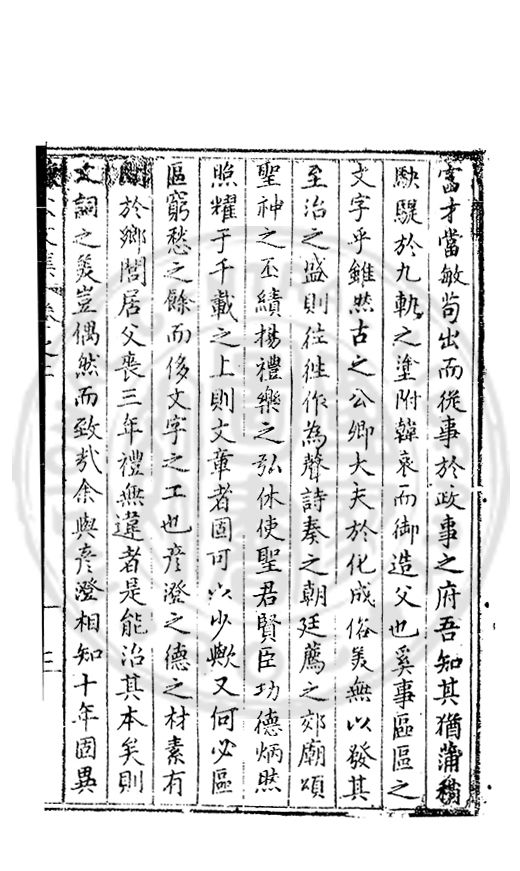 富才當敏苟出而從事於政事之府吾知其猶蒲稍
駃騠於九軌之塗附韓哀而御造父也奚事區區之
文字乎雖然古之公卿大夫於化成俗美無以發其
至治之盛則徃徃作為聲詩奏之朝廷薦之郊廟頌
聖神之丕績揚禮樂之弘休使聖君賢臣功德炳然
照耀于千載之上則文章者固可以少歟又何必區
區窮愁之餘而侈文字之工也彦澄之德之材素有
聞於鄉閭居父喪三年禮無違者是能治其本矣則
文詞之美豈偶然而致哉余與彦澄相知十年固異